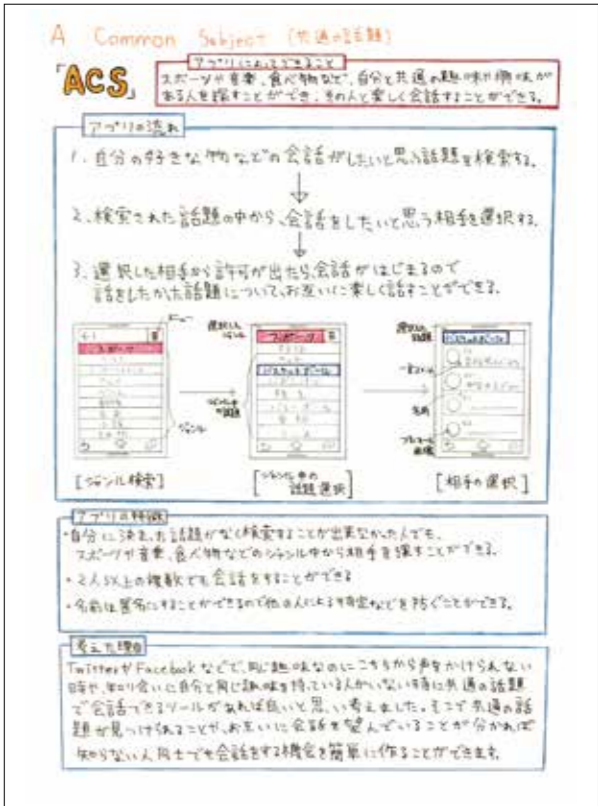 A Common Subject (共通の話題)
「ACS」
アプリによってできること
スポーツや音楽、食べ物など、自分と共通の趣味や興味が
ある人を探すことができ、その人と楽しく会話することができる。
アプリの流れ
1、自分の好きな物などの会話がしたいと思う話題を検索する。
2、検索された話題の中から、会話をしたいと思う相手を選択する。
3、選択した相手から許可が出たら会話がはじまるので
話をしたかった話題について、お互いに楽しく話すことができる。
メニュー
スポーツ
ジャンル
選択した
ジャンル
スポーツ
バスケットボール
ジャンル中
の話題
選択した
話題
バスケットボール
一言コメント
名前
プロフィール
画像
[ジャンル検索]
[ジャンル中の
話題選択]
[相手の選択]
アプリの特徴
・自分に決まった話題がなく検索することが出来なかった人でも、
スポーツや音楽、食べ物などのジャンル中から相手を探すことができる。
・2人以上の複数でも会話をすることができる
・名前は匿名にすることができるので他の人による特定などを防ぐことができる。
考えた理由
TwitterやFacebookなどで、同じ趣味なのにこちらから声をかけられない
時や、知り合いに自分と同じ趣味を持っている人がいない時に共通の話題
で会話できるツールがあれば良いと思い、考えました。そこで共通の話
題が見つけられることや、お互いに会話を望んでいることが分かれば
知らない人同士でも会話をする機会を簡単に作ることができます。